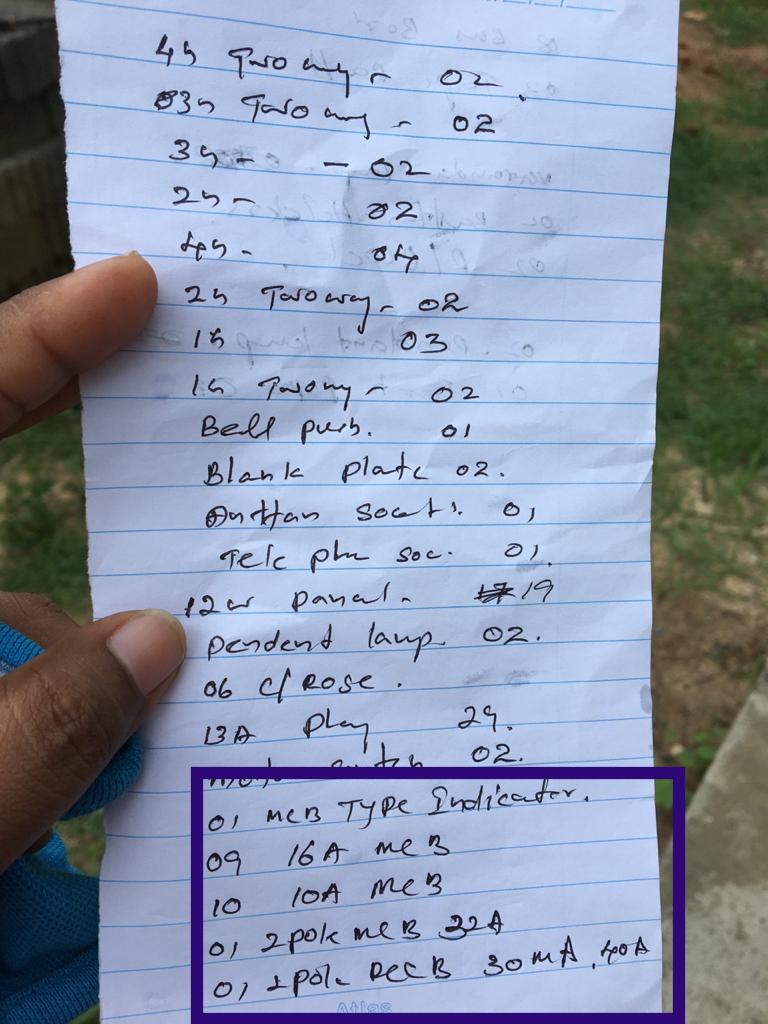 4G Two way - 02.
03G Two way - 02
3G - - 02
2G - 02
4G - 04
2G Two way - 02
1G 03
1G Two way - 02
Bell push. 01
Blank plate 02.
socket. 01
Tele pho soc. 01.
12w panal - 19
pendent lamp. 02.
06 C/Rose.
13A plug 29.
02.
01 MCB TYPE Indicator.
09 16A MCB
10 10A MCB
01 2pole MCB 32A
01 2pole RCCB 30mA, 40A
Atlas